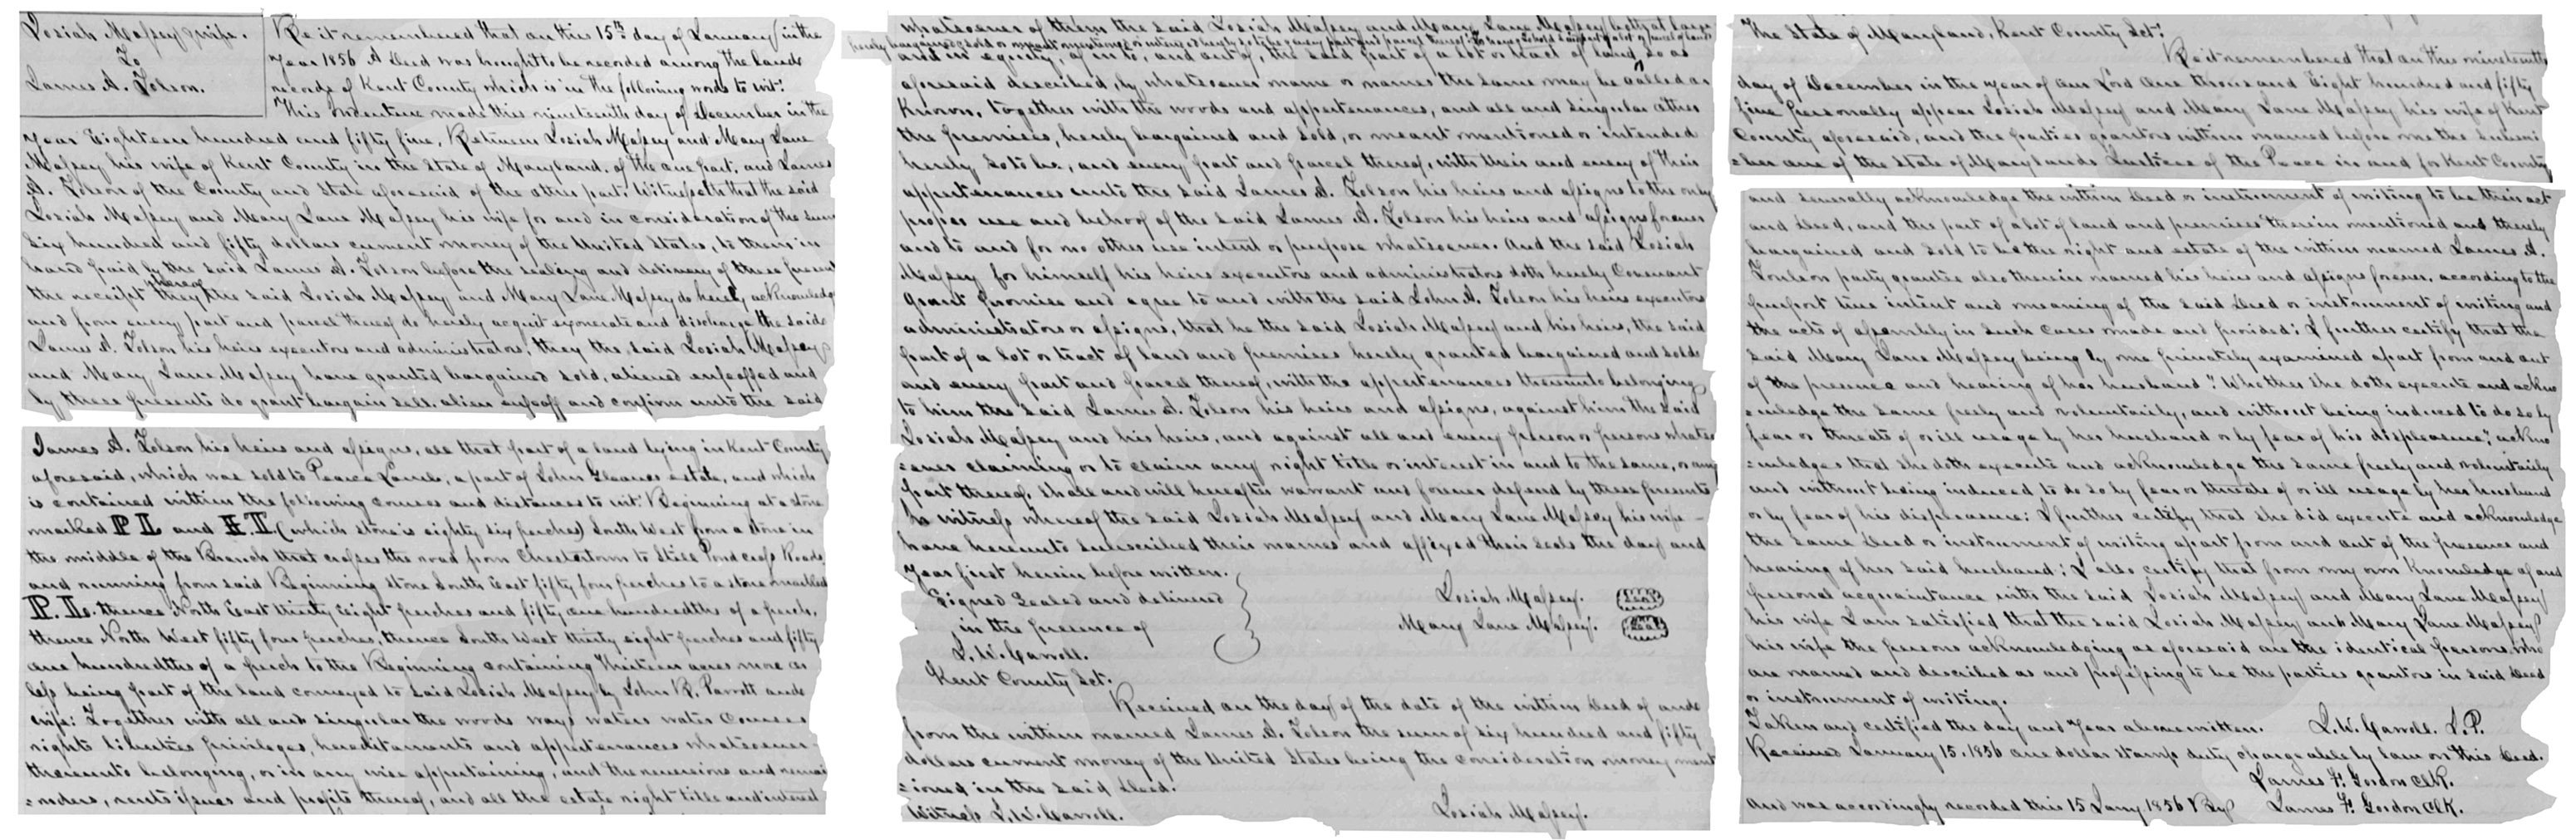 Josiah Massey & wife.
To
James A. Tolson.
Be it remembered that on this 15th day of January in the
year 1856 A Deed was brought to be recorded among the Lands
records of Kent County which is in the following words to wit:
This Indenture made this nineteenth day of December in the
year Eighteen hundred and fifty five, Between Josiah Massey and Mary Jane
Massey his wife of Kent County in the State of Maryland, of the one part, and James
A. Tolson of the County and State aforesaid of the other part: Witnesseth that the said
Josiah Massey and Mary Jane Massey his wife for and in consideration of the sum
six hundred and fifty dollars current money of the United States, to them in
hand paid by the said James A. Tolson before the sealing and delivery of these present
the receipt whereof they the said Josiah Massey and Mary Jane Massey do hereby acknowledge
and from every part and parcel thereof do hereby acquit exonerate and discharge the said
James A. Tolson his heirs executors and administrators; they the said Josiah Massey
and Mary Jane Massey have granted bargained sold, aliened enfeoffed and
by these presents do grant bargain sell, alien enfeoff and confirm unto the said
James A. Tolson his heirs and assigns, all that part of a land lying in Kent County
aforesaid, which was sold to Pearce Lamb, a part of John Gleaves estate, and which
is contained within the following courses and distances to wit: Beginning at a stone
marked P L and H T. (which stone is eighty six perches) South West from a stone in
the middle of the Branch that crosses the road from Chestertown to Still Pond cross Roads
and running from said Beginning stone South East fifty four perches to a stone marked
P. L. thence North East thirty eight perches and fifty one hundredths of a perch,
thence North West fifty four perches, thence South West thirty eight perches and fifty
one hundredths of a perch to the Beginning containing Thirteen acres more or
less being part of the land conveyed to said Josiah Massey by John B. Parrott and
wife: Together with all and singular the woods ways waters water courses
rights liberties privileges, hereditaments and appertenances whatsoever
thereunto belonging, or in any wise appertaining, and the reversions and remai
=nders, rents issues and profits thereof, and all the estate right title and interest
whatsoever of them the said Josiah Massey and Mary Jane Massey both at law
and in equity, of in to, and out of, the said part of a lot or tract of land so as
aforesaid described, by whatsoever name or names the same may be called or
known, together with the woods and appertenances, and all and singular other
the premises, hereby bargained and sold, or meant mentioned or intended
hereby so to be, and every part and parcel thereof, with their and every of their
appertenances unto the said James A. Tolson his heirs and assigns to the only
proper use and behoof of the said James A. Tolson his heirs and assigns forever
and to and for no other use intent or purpose whatsoever. And the said Josiah
Massey for himself his heirs executors and administrators doth hereby Covenant
Grant promise and agree to and with the said John A. Tolson his heirs executors
administrators or assigns, that he the said Josiah Massey and his heirs, the said
part of a lot or tract of land and premises hereby granted bargained and sold
and every part and parcel thereof, with the appertenances thereunto belonging
to him the said James A. Tolson his heirs and assigns, against him the said
Josiah Massey and his heirs, and against all and every person or persons whats
=oever claiming or to claim any right title or interest in and to the same, or any
part thereof, shall and will hereafter warrant and forever defend by these presents
In witness whereof the said Josiah Massey and Mary Jane Massey his wife
have hereunto subscribed their names and affixed their seals the day and
Year first herein before written.
Signed Sealed and delivered
in the presence of
J. W. Carroll.
Josiah Massey. Seal
Mary Jane Massey. Seal
Kent County Sct.
Received on the day of the date of the within Deed of and
from the within named James A. Tolson the sum of six hundred and fifty
dollars current money of the United States being the consideration money ment
=ioned in the said Deed.
Witness J. W. Carroll. Josiah Massey.
The State of Maryland, Kent County Sct:
Be it remembered that on this nineteenth
day of December in the year of our Lord One thousand Eight hundred and fifty
five personally appear Josiah Massey and Mary Jane Massey his wife of Kent
County aforesaid, and the parties grantors within named before me the subscri
=ber one of the State of Marylands Justices of the Peace in and for Kent County
and severally acknowledge the within Deed or instrument of writing to be their act
and deed, and the part of a lot of land and premises therein mentioned and thereby
bargained and sold to be the right and estate of the within named James A.
Toulson party grantee also therein named his heirs and assigns forever, according to the
purport true intent and meaning of the said Deed or instrument of writing and
the acts of assembly in such cases made and provided; I further certify that the
said Mary Jane Massey being by me privately examined apart from and out
of the presence and hearing of her husband "Whether she doth execute and ackno
=wledge the same freely and voluntarily, and without being induced to do so by
fear or threats of or ill usage by her husband or by fear of his displeasure," ackno
=wledges that she doth execute and acknowledge the same freely and voluntarily
and without being induced to do so by fear or threats of or ill usage by her husband
or by fear of his displeasure: I further certify that she did execute and acknowledge
the same Deed or instrument of writing apart from and out of the presence and
hearing of her said husband: I also certify that from my own knowledge of and
personal acquaintance with the said Josiah Massey and Mary Jane Massey
his wife I am satisfied that the said Josiah Massey and Mary Jane Massey
his wife the persons acknowledging as aforesaid are the identical persons, who
are named and described as and professing to be the parties grantors in said Deed
or instrument of writing.
Taken and certified the day and year above written. J. W. Carroll. J. P.
Received January 15. 1856 one dollar stamp duty chargeable by law on this Deed.
James F. Gordon Clk.
and was accordingly recorded this 15 Jany 1856 By James F. Gordon Clk.